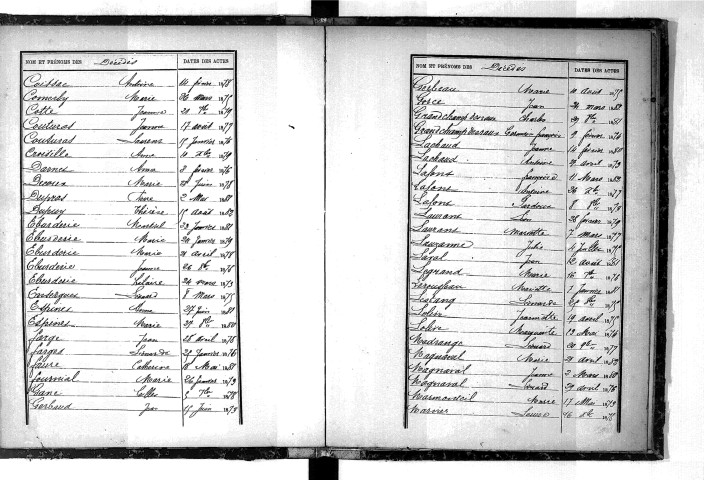 NOM ET PRÉNOMS DES Décédés DATES DES ACTES
Coissac Antoine 14 février 1878
Comerly Marie 26 mars 1875
Cotte Jeanne 21 7bre 1879
Couturas Jeanne 17 août 1877
Couturas Laurens 17 Janvier 1876
Croisille Anne 10 Xbre 1879
Darnis Anna 8 février 1876
Decoux Marie 28 Juin 1878
Dupras Pierre 2 Mai 1881
Dupuy Thérèse 15 août 1882
Eburderie Martial 23 Janvier 1881
Eburderie Marie 20 Janvier 1879
Eburderie Maria 21 avril 1878
Eburderie Jeanne 26 8bre 1876
Eburderie Hélaire 24 mars 1873
Léonard 8 Mars 1875
Espinet 27 Juin 1881
Espinet Marie 27 8bre 1880
Farge Jean 25 avril 1876
Farges Léonarde 29 Janvier 1876
Faure Catherine 18 Mai 1881
Fournial Marie 26 Janvier 1879
Gane 5 7bre 1878
Gerbaud Jean 17 Juin 1873
NOM ET PRÉNOMS DES Décédés DATES DES ACTES
Gorbeau Marie 11 août 1875
Gorce Jean 24 mars 1882
Grandchamp desraux Charles 29 7bre 1881
Grandchamp desraux françois 9 février 1874
Lachaud Jeanne 14 février 1880
Lachaud Antoine 29 avril 1873
Lafont 11 Mars 1882
Lafont Antoine 24 Xbre 1877
Lafont Pardoux 8 1878
Laurans Léon 25 février 1879
Laurans Mariette 7 mars 1877
Lauzanne Jules 4 Juillet 1875
Laval Jean 12 août 1881
Legrand Marie 16 7bre 1876
Mariette 7 Janvier 1881
Lestang Léonarde
Loleri Jeannette 19 avril 1875
Loleri Marguerite 12 Mai 1876
Madrange Léonard 20 9bre 1877
Magnaval Marie 21 avril 1882
Magnaval Jeanne 2 Mars 1880
Magnaval Léonard 29 avril 1876
Marmondeil Marie 17 Mai 1873
Marner Louise 16 Xbre 1875